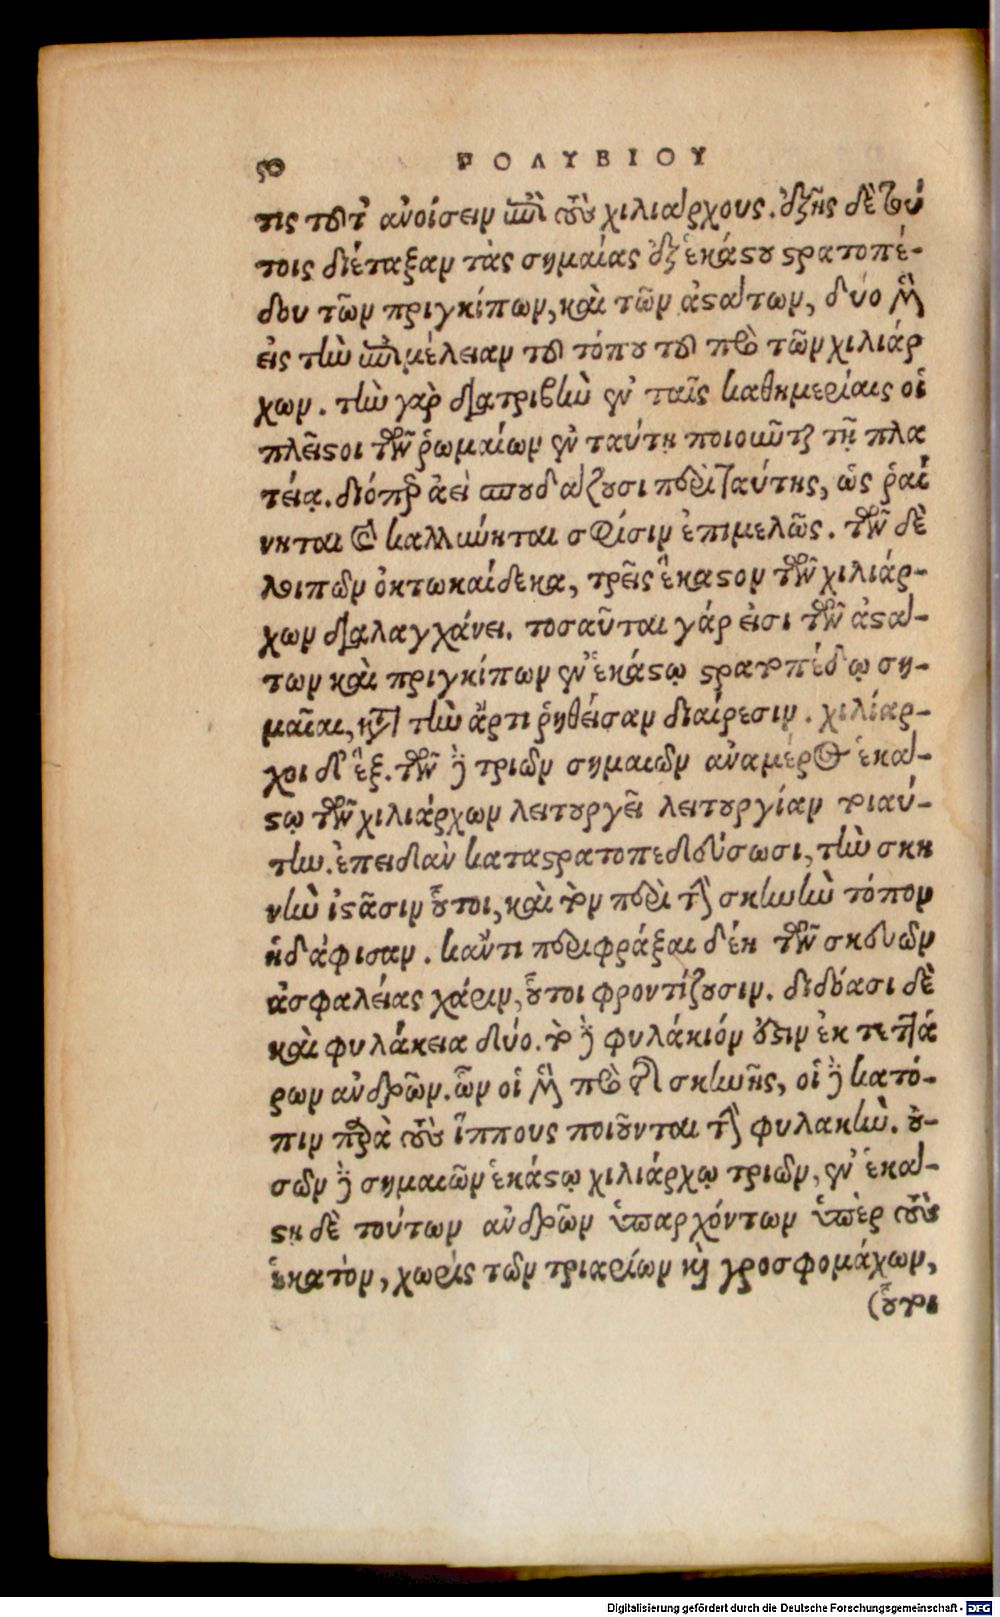 ΠΟΛΥΒΙΟΥ
τις τοῦτ' ἀνοίσειν ἐπὶ τοὺς χιλιάρχους. ἑξῆς δὲ τού
τοις διέταξαν τὰς σημαίας ἐξ ἑκάστου στρατοπέ-
δου τῶν πριγκίπων, καὶ τῶν ἁστάτων, δύο μὲν
εἰς τὴν ἐπιμέλειαν τοῦ τόπου τοῦ πρὸ τῶν χιλιάρ
χων. τὴν γὰρ διατριβὴν ἐν ταῖς καθημερίαις οἱ
πλεῖστοι τῶν ῥωμαίων ἐν ταύτῃ ποιοῦνται τῇ πλα
τείᾳ. διόπερ ἀεὶ σπουδάζουσι περὶ ταύτης, ὡς ῥαί
νηται καὶ καλλύνηται σφίσιν ἐπιμελῶς. τῶν δὲ
λοιπῶν ὀκτωκαίδεκα, τρεῖς ἕκαστον τῶν χιλιάρ-
χων διαλαγχάνει. τοσαῦται γάρ εἰσι τῶν ἁστά-
των καὶ πριγκίπων ἐν ἑκάστῳ στρατοπέδῳ ση-
μαῖαι, κατὰ τὴν ἄρτι ῥηθεῖσαν διαίρεσιν. χιλίαρ-
χοι δ' ἕξ. τῶν δὲ τριῶν σημαιῶν ἀναμέρος ἑκά-
στῳ τῶν χιλιάρχων λειτουργεῖ λειτουργίαν τοιαύ-
την. ἐπειδὰν καταστρατοπεδεύσωσι, τὴν σκη
νὴν ἱστᾶσιν οὗτοι, καὶ τὸν περὶ τὴν σκηνὴν τόπον
ἠδάφισαν. κἄντι περιφράξαι δέῃ τῶν σκευῶν
ἀσφαλείας χάριν, οὗτοι φροντίζουσιν. διδόασι δὲ
καὶ φυλάκεια δύο. τὸ δὲ φυλάκιόν ἐστιν ἐκ τεττά
ρων ἀνδρῶν. ὧν οἱ μὲν πρὸ τῆς σκηνῆς, οἱ δὲ κατό-
πιν παρὰ τοὺς ἵππους ποιοῦνται τὴν φυλακήν. οὐ-
σῶν δὲ σημαιῶν ἑκάστῳ χιλιάρχῳ τριῶν, ἐν ἑκά-
στῃ δὲ τούτων ἀνδρῶν ὑπαρχόντων ὑπὲρ τοὺς
ἑκατὸν, χωρὶς τῶν τριαρίων καὶ γροσφομάχων,
(οὗτοι
Digitalisierung gefördert durch die Deutsche Forschungsgemeinschaft - DFG